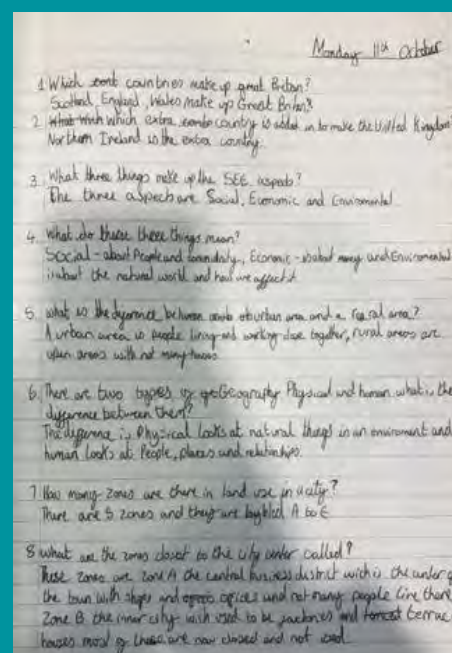 Monday 11th October
1 Which countries make up great Britan?
Scotland, England, Wales make up Great Britan
2. which extra country is added in to make the United Kingdom?
Northern Ireland is the extra country.
3. What three things make up the SEE aspects?
The three aspects are Social, Economic and Enviromental
4. What do these three things mean?
Social - about People and, Economic - is about money and Enviromental
is about the natural world and how we affect it.
5. what is the difference between urban area and a rural area?
A urban area is people living and working close together, rural areas are
open areas with not many houses
6. There are two types of Geography Physical and human what is the
difference between them?
The difference is Physical looks at natural things in an enviroment and
human looks at People, places and relationships.
7 How many zones are there in land use in a city?
There are 5 zones and they are labled A to E
8 What are the zones closet to the city center called?
These zones are zone A the central business district wich is the center of
the town with shops and offices and not many people live there
Zone B the inner city wich used to be factories and terrace
houses most of these are now closed and not used.